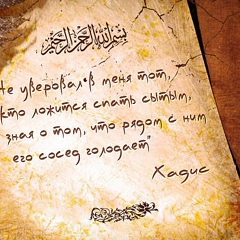 بسم الله الرحمن الرحيم
Не уверовал в меня тот,
кто ложится спать сытым,
зная о том, что рядом с ним
его сосед голодает"
Хадис